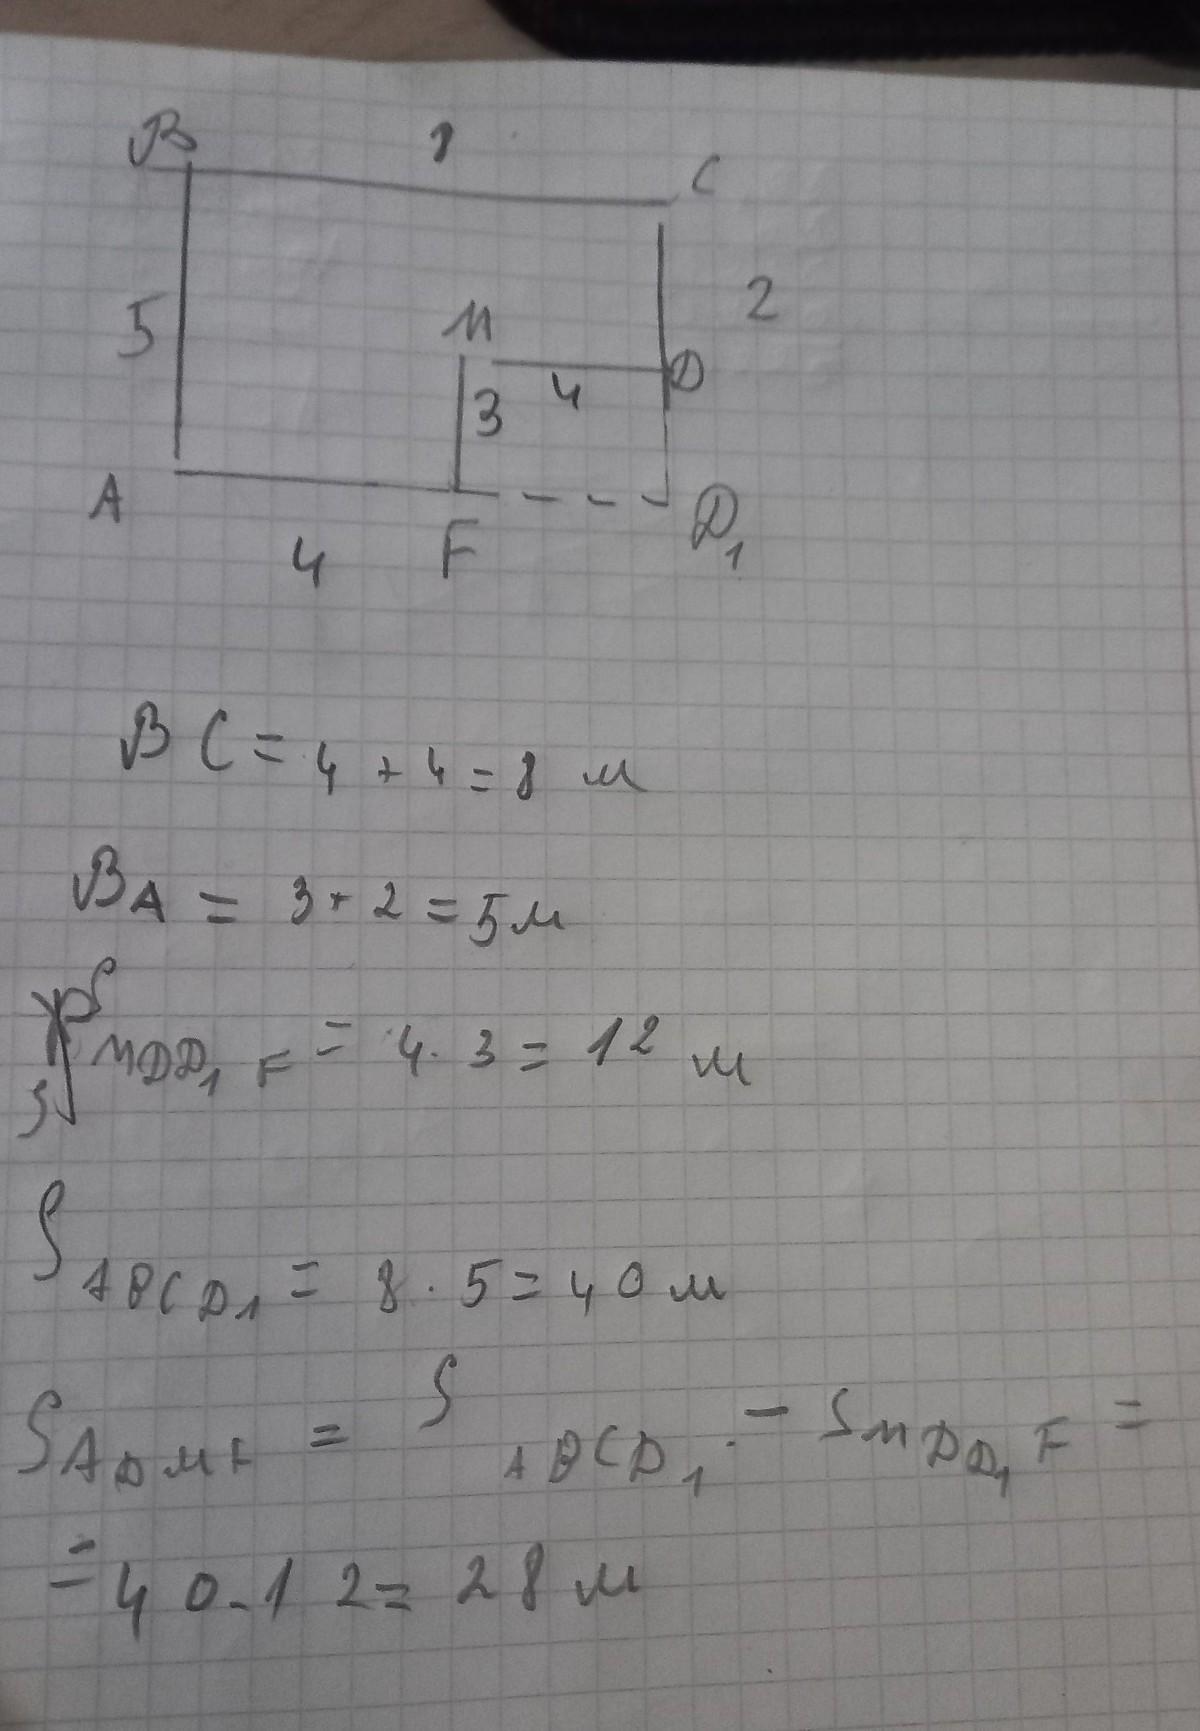 B 8 C
5 M 2
3 4 D
A 4 F D₁
BC = 4 + 4 = 8 м
BA = 3 + 2 = 5 м
S MDD₁F = 4 · 3 = 12 м
S ABCD₁ = 8 · 5 = 40 м
S ADMF = S ABCD₁ - S MDD₁F =
= 40 - 12 = 28 м